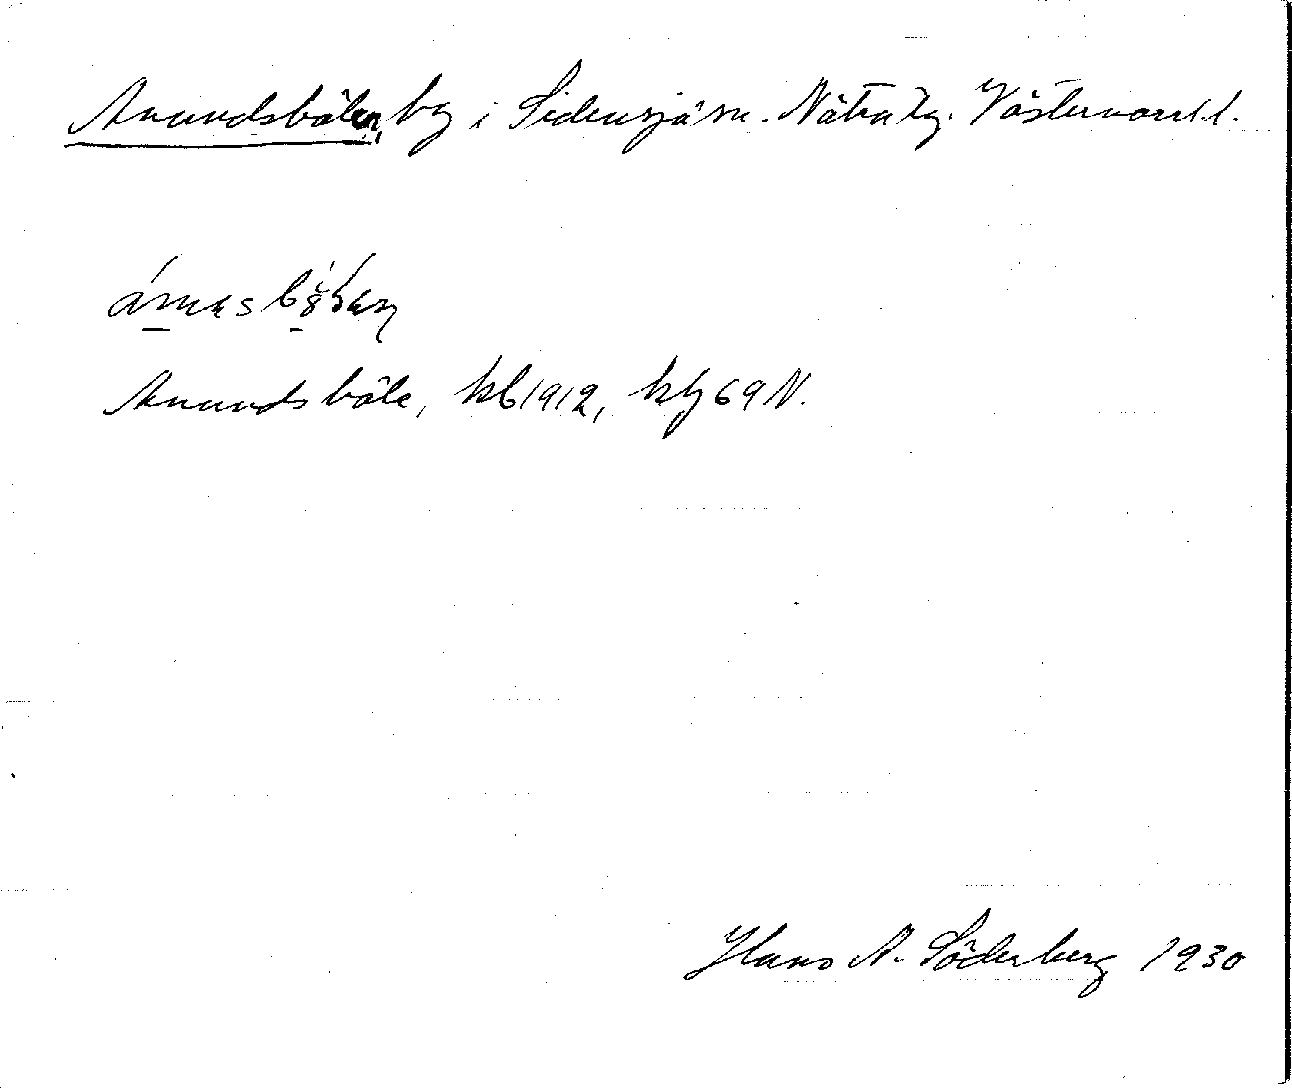 Anundsbölen, by i Sidensjö sn. Nätra tg. Västernorrl. l.
Anundsböle, kb 1912, kbg 69 N.
Hans A. Söderberg 1930